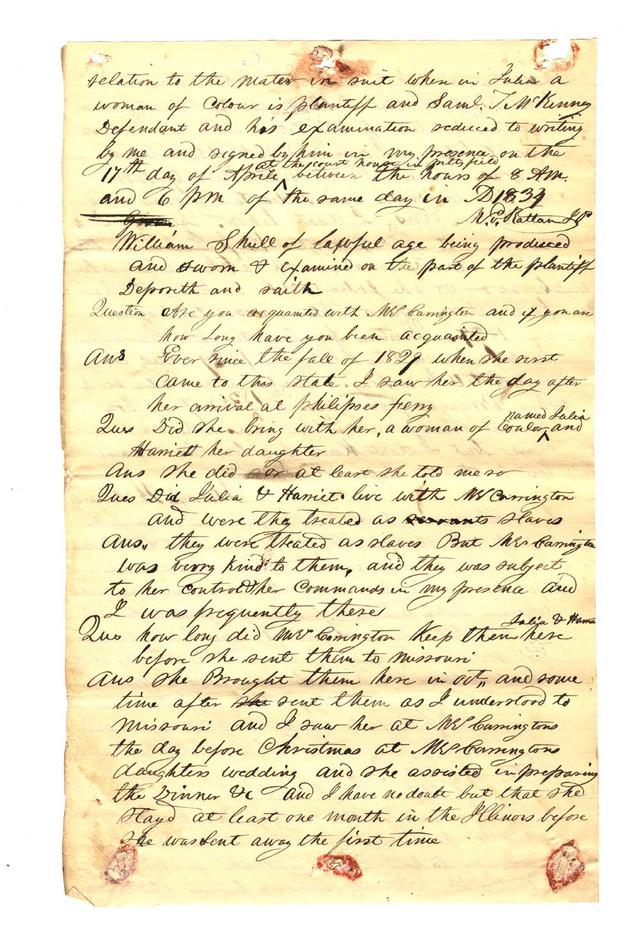 relation to the mater in suit when in Julia a
woman of colour is plaintiff and Saml. T. McKenney
Defendant and his examination reduced to writing
by me and signed by him in my presence on the
17th day of Aprile at the court house in pittsfield between the hours of 8 AM.
and 6 pm of the same day in D 1834
Rattan J P
William Shell of lawful age being produced
and sworn & examined on the part of the plaintiff
Deposith and saith
Question Are you acquanted with Mrs Carrington and if you are
how Long have you been acquainted
Ans Ever since the fall of 1829 when she first
came to this state. I saw her the day after
her arrival at philipses ferry
Ques Did she bring with her, a woman of Coulor named Julia and
Harriett her daughter
Ans she did or at least she told me so
Ques Did Julia & Harriet live with Mrs Carrington
and were they treated as servants slaves
Ans,, they were theated as slaves But Mrs Carrington
was verry kind to them, and they was subject
to her control & her commands in my presence and
I was frequently there
Ques how long did Mrs Carrington Keep them Julia & Harriet here
before she sent them to missouri
Ans she Brought them here in oct,, and some
time after she sent them as I understood to
missouri and I saw her at Mrs Carringtons
the day before Christmas at Mrs Carringtons
daughters wedding and she assisted in preparing
the Dinner &c and I have no doubt but that she
stayd at least one month in the Illinois before
she was sent away the first time